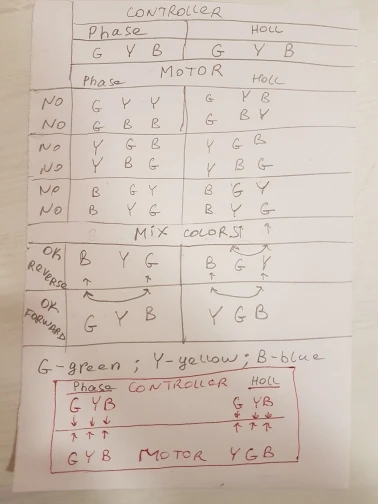 CONTROLLER
Phase HOLL
G Y B G Y B
MOTOR
Phase HOLL
NO G Y Y G Y B
NO G B B G B Y
NO Y G B Y G B
NO Y B G Y B G
NO B G Y B G Y
NO B Y G B Y G
MIX COLORS!
OK REVERSE B Y G B G Y
OK FORWARD G Y B Y G B
G-green ; Y-yellow ; B-blue
Phase CONTROLLER HOLL
G Y B G Y B
G Y B MOTOR Y G B